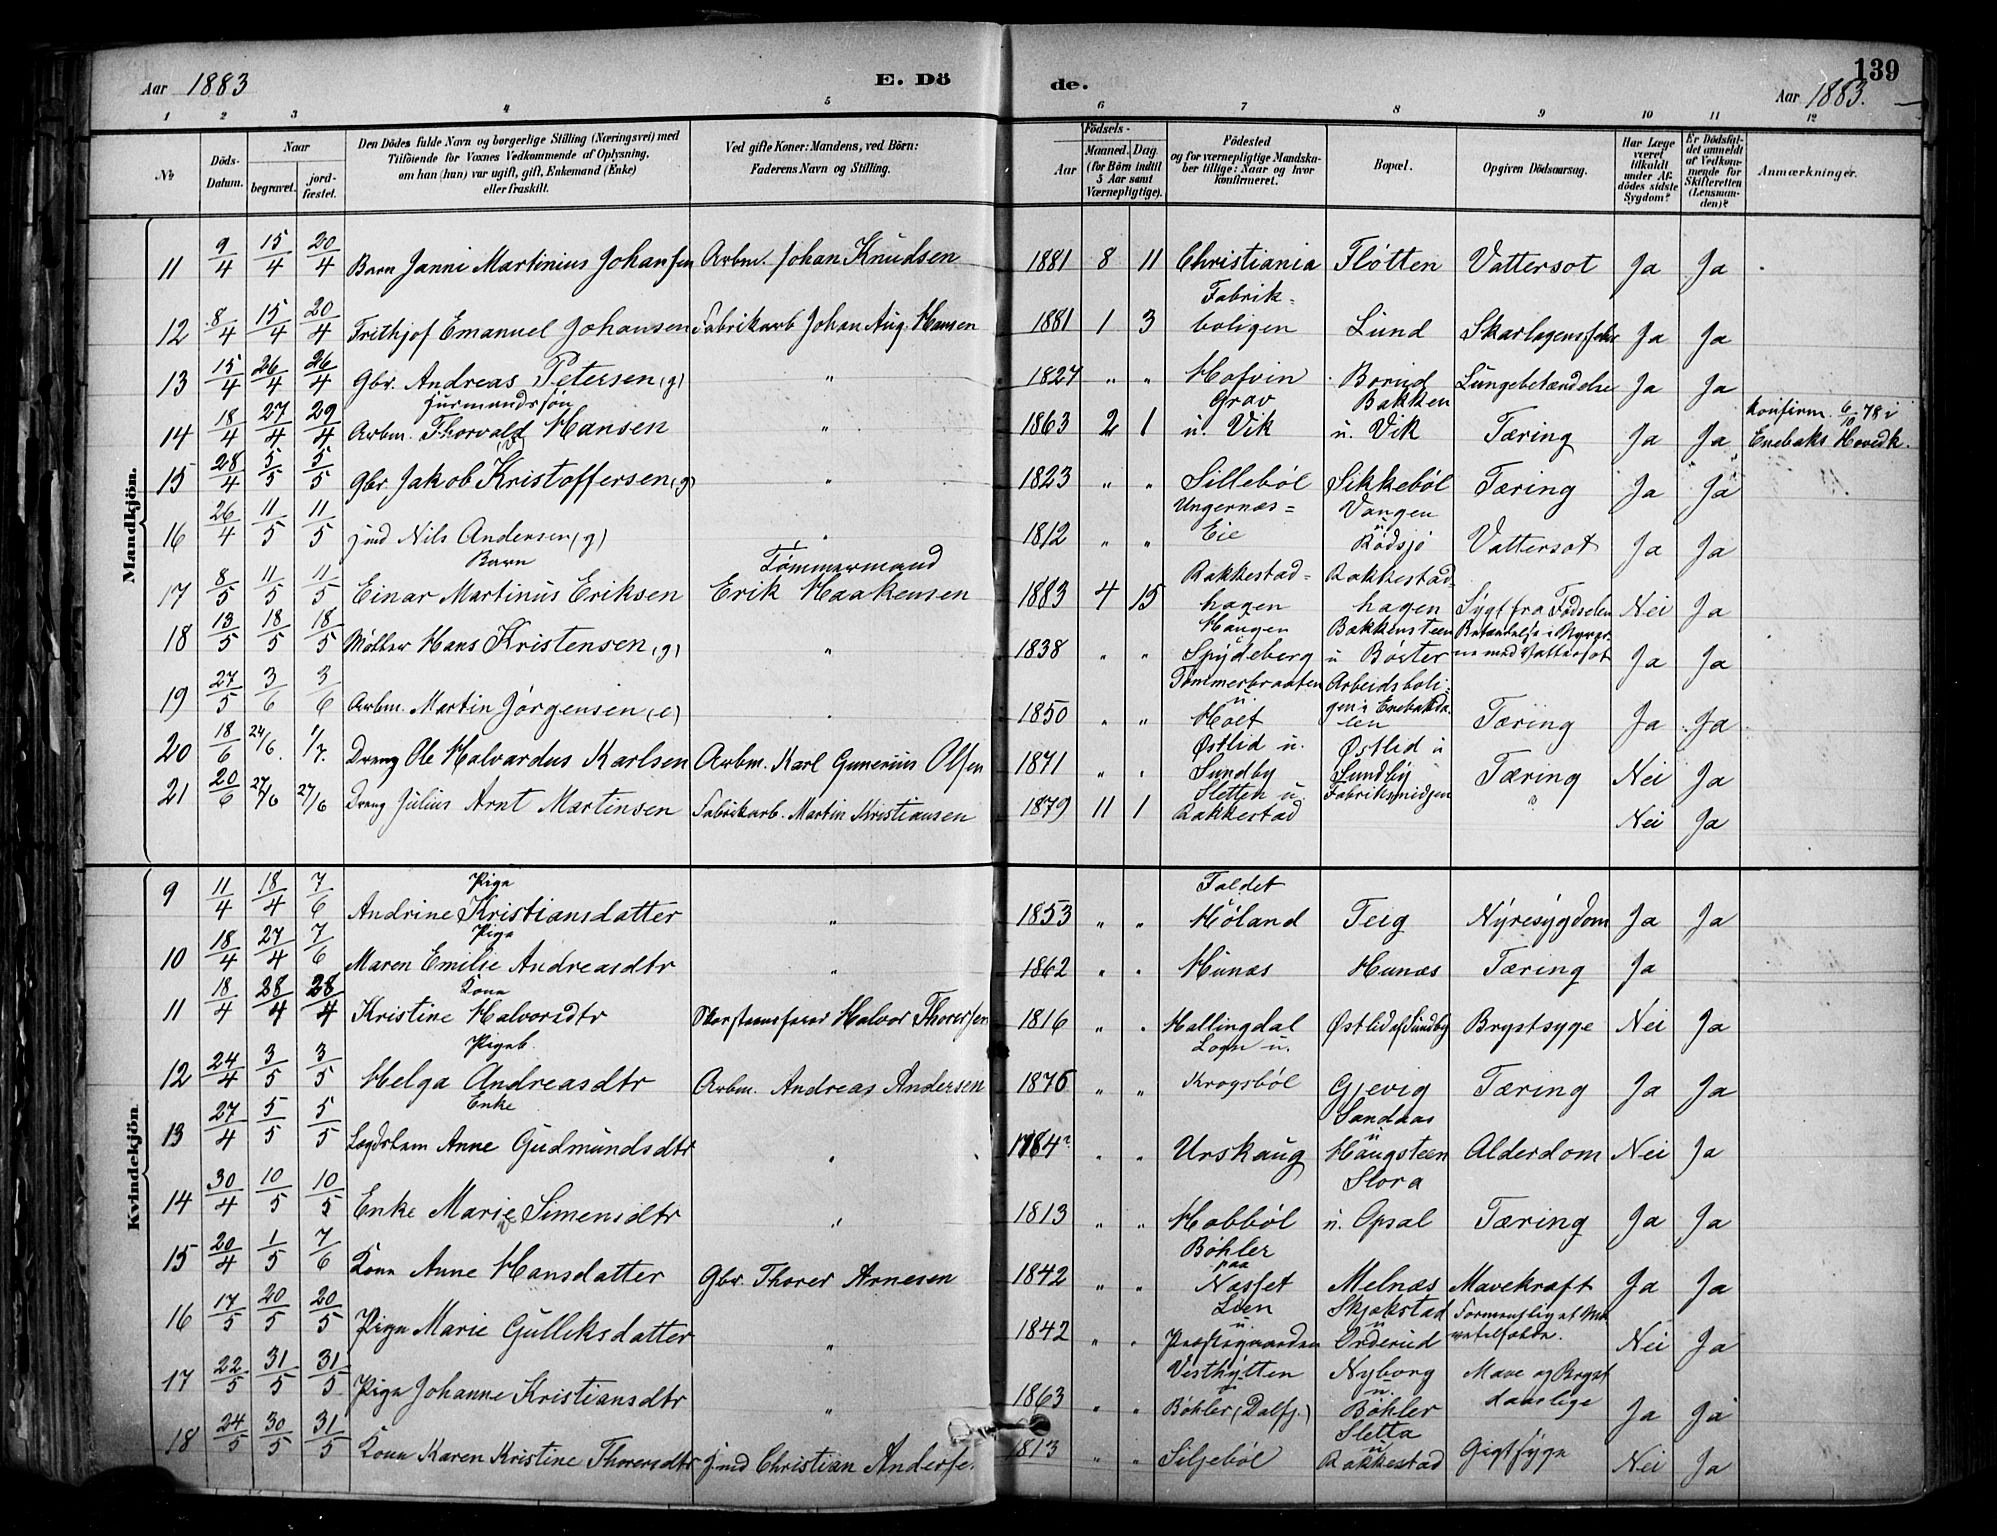 Aar 1883 E. Dö de. 139
Aar 1883.
1 2 3 4 5 6 7 8 9 10 11 12
No
Döds-Datum.
Naar
begravet. jord-fæstet.
Den Dödes fulde Navn og borgerlige Stilling (Næringsvei) med
Tilföiende for Voxnes Vedkommende af Oplysning,
om han (hun) var ugift, gift, Enkemand (Enke)
eller fraskilt.
Ved gifte Koner: Mandens, ved Börn:
Faderens Navn og Stilling.
Födsels-
Aar Maaned. Dag.
(for Börn indtil
5 Aar samt
Værnepligtige).
Födested
og for værnepligtige Mandska-
ber tillige: Naar og hvor
konfirmeret.
Bopæl.
Opgiven Dödsaarsag.
Har Læge
været
tilkaldt
under Af-
dödes sidste
Sygdom?
Er Dödsfal-
det anmeldt
af Vedkom-
mende for
Skifteretten
(Lensman-
den)?
Anmærkninger.
Mandkjön.
11 9/4 15/4 20/4 Barn Janni Martinius Johansen Arbm. Johan Knudsen 1881 8 11 Christiania Fløtten Vattersot Ja Ja
12 8/4 15/4 20/4 Frithjof Emanuel Johansen Fabrikarb Johan Aug. Hansen 1881 1 3 Fabrik-boligen Lund Skarlagensfeber Ja Ja
13 15/4 26/4 26/4 Gbr. Andreas Petersen (g) " 1827 " " Hofvin Borud Lungebetændelse Ja Ja
14 18/4 27/4 29/4 Arbm. Husmandssøn Thorvald Hansen " 1863 2 1 Grav u. Vik Bakken u. Vik Tæring Ja Ja Konfirm. 6/10 78 i Enebaks Hovedk.
15 28/4 5/5 5/5 Gbr Jakob Kristoffersen (g) " 1823 " " Sillebøl Sikkebøl Tæring Ja Ja
16 26/4 11/5 11/5 Ind Nils Andersen (g) " 1812 " " Ungernæs-Eie Vangen u Rødsjø Vattersot Ja Ja
17 8/5 11/5 11/5 Barn Einar Martinus Eriksen Tømmermand Erik Haakensen 1883 4 15 Rakkestad-hagen Rakkestad-hagen Sygt fra Fødselen Nei Ja
18 13/5 18/5 18/5 Møller Hans Kristensen (g) " 1838 " " Haugen Spydeberg Bakkensteen u Børter Betændelse i Nyrerne med Vattersot Ja Ja
19 27/5 3/6 3/6 Arbm. Martin Jørgensen (e) 1850 " " Tømmerbraaten u Holt Arbeidsboligen i Enebakdalen Tæring Ja Ja
20 18/6 24/6. 1/7. Dreng Ole Halvardus Karlsen Arbm. Karl Gunerius Olsen 1871 " " Østlid u. Sundby Østlid u Sundby Tæring Nei Ja
21 20/6 27/6 27/6 Dreng Julius Arnt Martinsen Fabrikarb. Martin Kristiansen 1879 11 1 Sletten u. Rakkestad Fabriksmidjen " Nei Ja
Kvindekjön.
9 11/4 18/4 7/6 Pige Andrine Kristiansdatter " 1853 " " Faldet Høland Teig Nyresygdom Ja Ja
10 18/4 27/4 7/6 Pige Maren Emilie Andreasdtr " 1862 " " Hunæs Hunæs Tæring Ja
11 18/4 28/4 28/4 Kone Kristine Halvorsdtr Skorsteensfeier Halvor Thoresen 1816 " " Hallingdal Østlid af Sundby Brystsyge Nei Ja
12 24/4 3/5 3/5 Pigeb. Helga Andreasdtr Arbm. Andreas Andersen 1875 " " Logn u. Krogsbøl Gjevig Tæring Ja Ja
13 27/4 5/5 5/5 Enke Lægdslem Anne Gudmundsdtr " 1784? " " Urskaug Sandaas u Haugsteen Alderdom Nei Ja
14 30/4 10/5 10/5 Enke Marie Simensdtr " 1813 " " Hobbøl Slora u. Opsal Tæring Ja Ja
15 20/4 1/5 7/6 Kone Anne Hansdatter Gbr. Thorer Arnesen 1842 " " Bøhler paa Næsset Melnæs Mavekræft Ja Ja
16 17/5 20/5 20/5 Pige Marie Gulleksdatter " 1842 " " Lien u Præstegaarden Skjækstad u Orderud Nei Ja
17 22/5 31/5 31/5 Pige Johanne Kristiansdtr " 1863 " " Vesthytten u Bøhler (Dalfj.) Nyborg u. Bøhler Mave og Bryst Ja Ja
18 24/5 30/5 31/5 Kone Karen Kristine Thorersdtr Ind Christian Anderse. 1813 " " Siljebøl Sletta u Rakkestad Gigtsyge Nei Ja